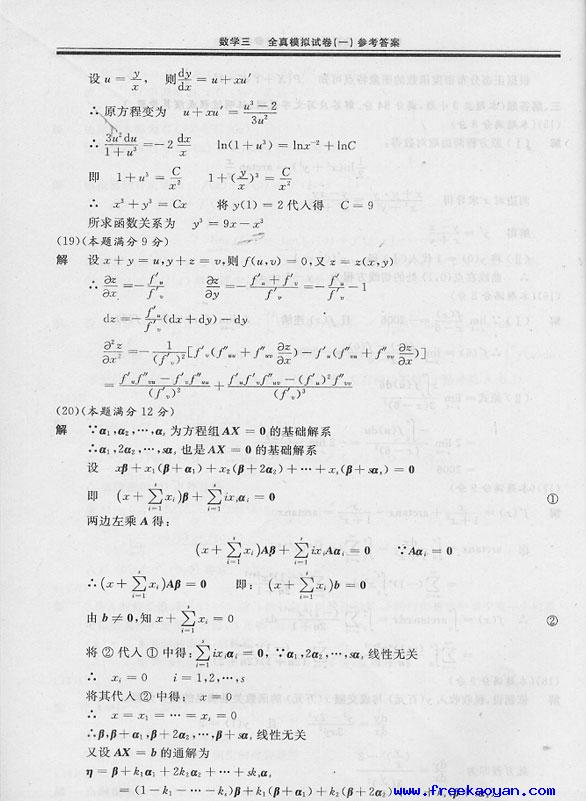 数学三 全真模拟试卷(一)参考答案
设 u = y/x, 则 dy/dx = u + xu′
∴ 原方程变为 u + xu′ = (u³ − 2)/(3u²)
∴ 3u²du/(1 + u³) = −2 dx/x ln(1 + u³) = lnx⁻² + lnC
即 1 + u³ = C/x² 1 + (y/x)³ = C/x²
∴ x³ + y³ = Cx 将 y(1) = 2 代入得 C = 9
所求函数关系为 y³ = 9x − x³
(19)(本题满分 9 分)
解 设 x + y = u, y + z = v, 则 f(u,v) = 0, 又 z = z(x,y)
∴ ∂z/∂x = − f′ᵤ/f′ᵥ ∂z/∂y = − (f′ᵤ + f′ᵥ)/f′ᵥ = − f′ᵤ/f′ᵥ − 1
dz = − f′ᵤ/f′ᵥ (dx + dy) − dy
∂²z/∂x² = − 1/(f′ᵥ)² [f′ᵥ(f″ᵤᵤ + f″ᵤᵥ ∂z/∂x) − f′ᵤ(f″ᵥᵤ + f″ᵥᵥ ∂z/∂x)]
= (f′ᵤf″ᵥᵤ − f′ᵥf″ᵤᵤ)/(f′ᵥ)² + (f′ᵤf′ᵥf″ᵤᵥ − (f′ᵤ)²f″ᵥᵥ)/(f′ᵥ)³
(20)(本题满分 12 分)
解 ∵ α₁, α₂, ⋯, αₛ 为方程组 AX = 0 的基础解系
∴ α₁, 2α₂, ⋯, sαₛ 也是 AX = 0 的基础解系
设 xβ + x₁(β + α₁) + x₂(β + 2α₂) + ⋯ + xₛ(β + sαₛ) = 0
即 (x + ∑ᵢ₌₁ˢ xᵢ)β + ∑ᵢ₌₁ˢ ixᵢαᵢ = 0 ①
两边左乘 A 得:
(x + ∑ᵢ₌₁ˢ xᵢ)Aβ + ∑ᵢ₌₁ˢ ixᵢAαᵢ = 0 ∵ Aαᵢ = 0
∴ (x + ∑ᵢ₌₁ˢ xᵢ)Aβ = 0 即: (x + ∑ᵢ₌₁ˢ xᵢ)b = 0
由 b ≠ 0, 知 x + ∑ᵢ₌₁ˢ xᵢ = 0 ②
将 ② 代入 ① 中得: ∑ᵢ₌₁ˢ ixᵢαᵢ = 0, ∵ α₁, 2α₂, ⋯, sαₛ 线性无关
∴ xᵢ = 0 i = 1, 2, ⋯, s
将其代入 ② 中得: x = 0
∴ x = x₁ = ⋯ = xₛ = 0
∴ β, β + α₁, β + 2α₂, ⋯, β + sαₛ 线性无关
又设 AX = b 的通解为
η = β + k₁α₁ + 2k₂α₂ + ⋯ + skₛαₛ
= (1 − k₁ − ⋯ − kₛ)β + k₁(β + α₁) + k₂(β + 2α₂)
www.freekaoyan.com